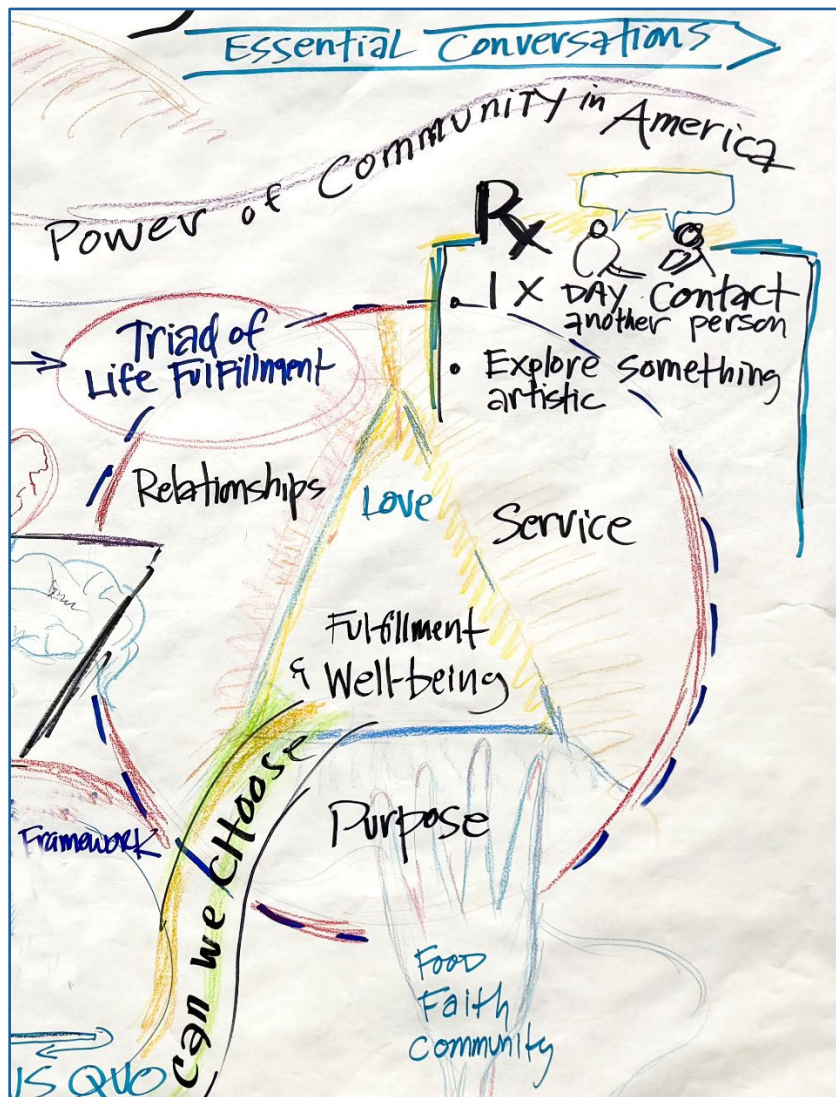 Essential Conversations
Power of Community in America
Rx
• 1 X DAY Contact
another person
• Explore something
artistic
Triad of
Life Fulfillment
Relationships
Love
Service
Fulfillment
& Well-being
can we CHoose
Purpose
Framework
Food
Faith
Community
US QUO